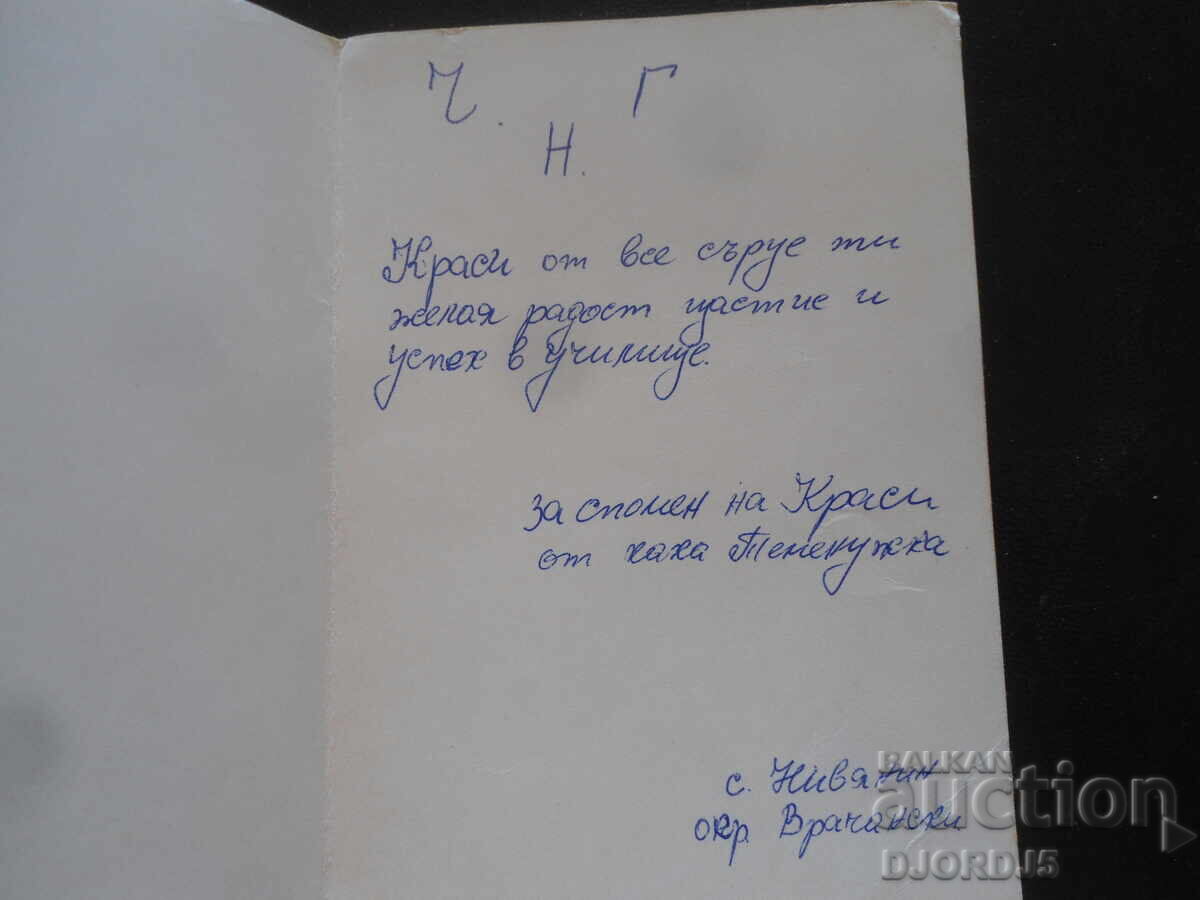 Ч. Н. Г
Краси от все сърце ти
желая радост щастие и
успех в училище.
За спомен на Краси
от кака Теменужка
с. Нивянин
окр. Врачански
BALKAN
auction
DJORDJ5